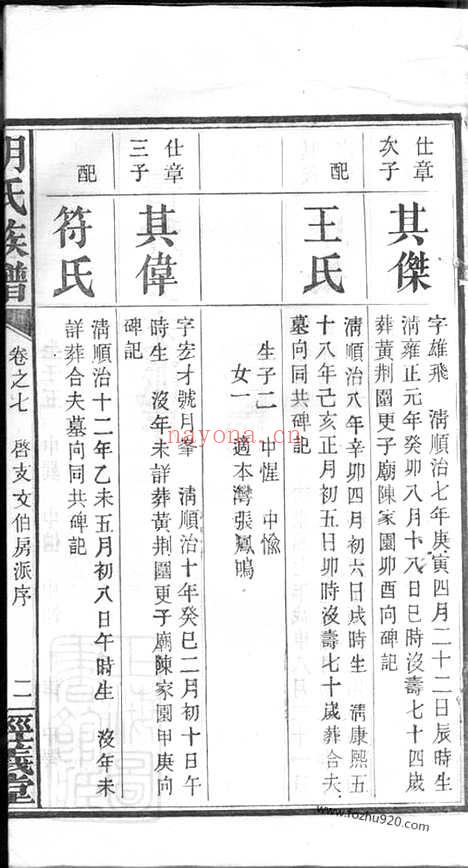 仕章
次子
其傑
字雄飛 清順治七年庚寅四月二十二日辰時生
清雍正元年癸卯八月十八日巳時沒壽七十四歲
葬黃荆園更子廟陳家園卯酉向碑記
配
王氏
清順治八年辛卯四月初六日戌時生 清康熙五
十八年己亥正月初五日卯時沒壽七十歲葬合夫
墓向同共碑記
生子二 中惺 中愉
女一 適本灣張鳳鳴
仕章
三子
其偉
字宏才號月峯 清順治十年癸巳二月初十日午
時生 沒年未詳葬黃荆園更子廟陳家園甲庚向
碑記
配
符氏
清順治十二年乙未五月初八日午時生 沒年未
詳葬合夫墓向同共碑記
氏族譜
卷之七 啓支文伯房派序
二
經義堂
nayona.cn
www.fozhu920.com